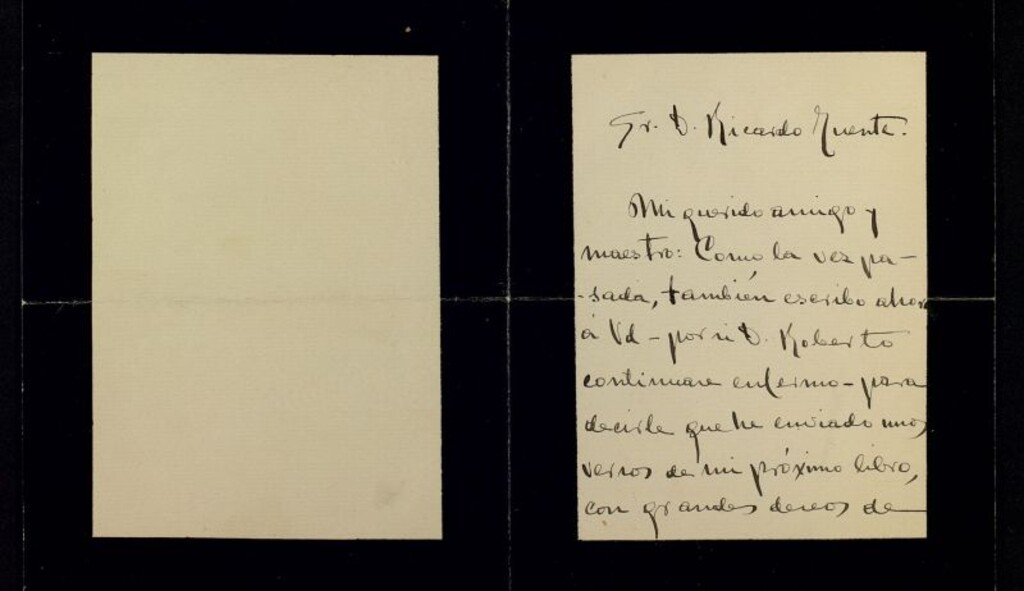 Sr. D. Ricardo Fuente.
Mi querido amigo y
maestro: Como la vez pa-
-sada, también escribo ahora
á Vd - por si D. Roberto
continuare enfermo - para
decirle que he enviado unos
versos de mi próximo libro,
con grandes deseos de